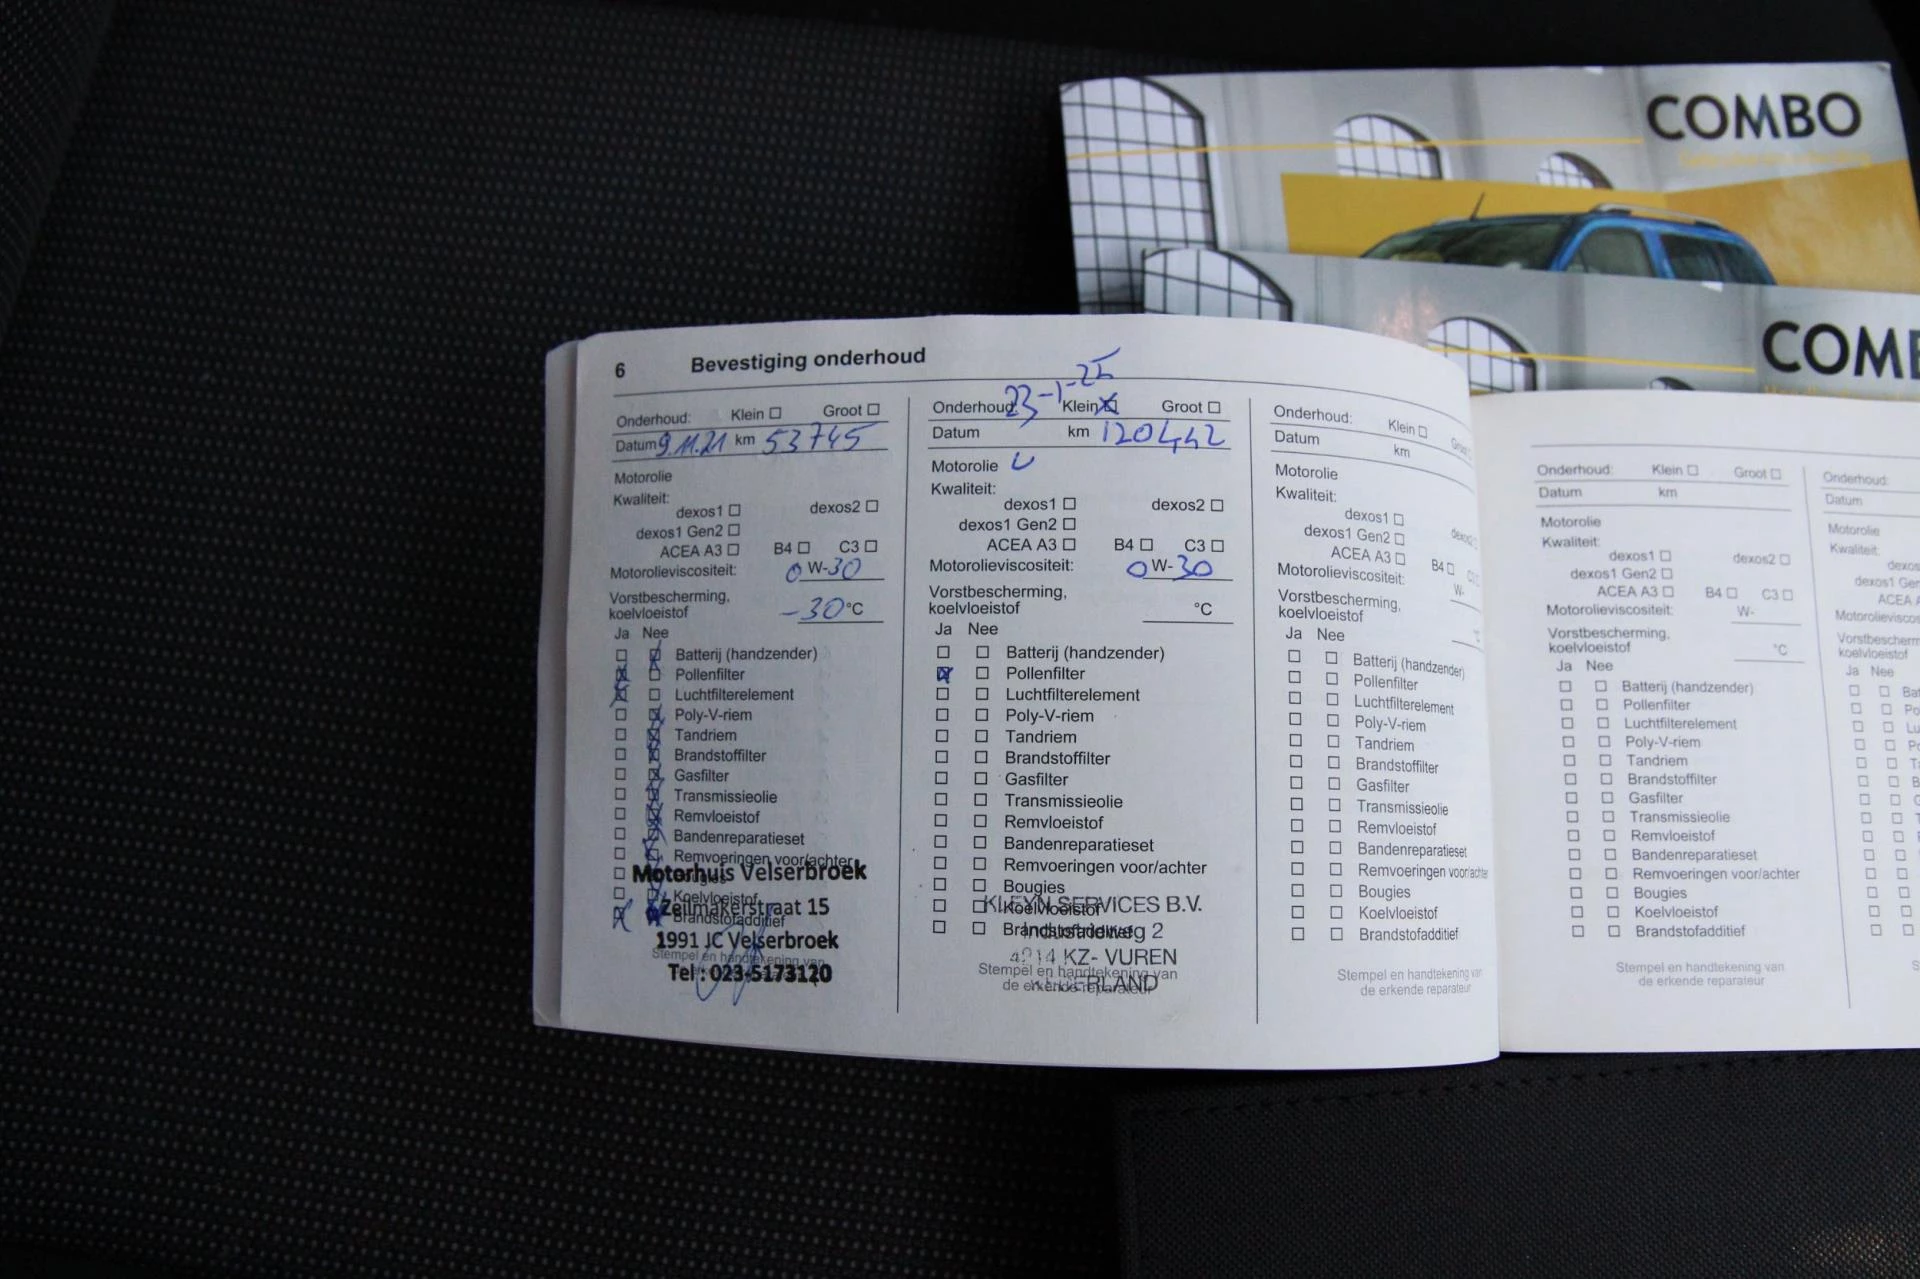 COMBO
COMB
6 Bevestiging onderhoud
Onderhoud: Klein Groot
Datum 9.11.21 km 53745
Motorolie
Kwaliteit:
dexos1 dexos2
dexos1 Gen2
ACEA A3 B4 C3
Motorolieviscositeit: 0 W-30
Vorstbescherming,
koelvloeistof -30 °C
Ja Nee
Batterij (handzender)
Pollenfilter
Luchtfilterelement
Poly-V-riem
Tandriem
Brandstoffilter
Gasfilter
Transmissieolie
Remvloeistof
Bandenreparatieset
Remvoeringen voor/achter
Bougies
Koelvloeistof
Brandstofadditief
Stempel en handtekening van
Motorhuis Velserbroek
Zeilmakerstraat 15
1991 JC Velserbroek
Tel : 023-5173120
23-1-25
Onderhoud: Klein Groot
Datum km 120442
Motorolie
Kwaliteit:
dexos1 dexos2
dexos1 Gen2
ACEA A3 B4 C3
Motorolieviscositeit: 0 W-30
Vorstbescherming,
koelvloeistof °C
Ja Nee
Batterij (handzender)
Pollenfilter
Luchtfilterelement
Poly-V-riem
Tandriem
Brandstoffilter
Gasfilter
Transmissieolie
Remvloeistof
Bandenreparatieset
Remvoeringen voor/achter
Bougies
Koelvloeistof
Brandstofadditief
Stempel en handtekening van
de erkende reparateur
KLEYN SERVICES B.V.
Industrieweg 2
4214 KZ- VUREN
Onderhoud: Klein
Datum km
Motorolie
Kwaliteit:
dexos1
dexos1 Gen2
ACEA A3 B4
Motorolieviscositeit: W-
Vorstbescherming,
koelvloeistof
Ja Nee
Batterij (handzender)
Pollenfilter
Luchtfilterelement
Poly-V-riem
Tandriem
Brandstoffilter
Gasfilter
Transmissieolie
Remvloeistof
Bandenreparatieset
Remvoeringen voor/achter
Bougies
Koelvloeistof
Brandstofadditief
Stempel en handtekening van
de erkende reparateur
Onderhoud: Klein Groot
Datum km
Motorolie
Kwaliteit:
dexos1 dexos2
dexos1 Gen2
ACEA A3 B4 C3
Motorolieviscositeit: W-
Vorstbescherming,
koelvloeistof °C
Ja Nee
Batterij (handzender)
Pollenfilter
Luchtfilterelement
Poly-V-riem
Tandriem
Brandstoffilter
Gasfilter
Transmissieolie
Remvloeistof
Bandenreparatieset
Remvoeringen voor/achter
Bougies
Koelvloeistof
Brandstofadditief
Stempel en handtekening van
de erkende reparateur
Onderhoud:
Datum
Motorolie
Kwaliteit:
Vorstbescherming
koelvloeistof
Ja Nee